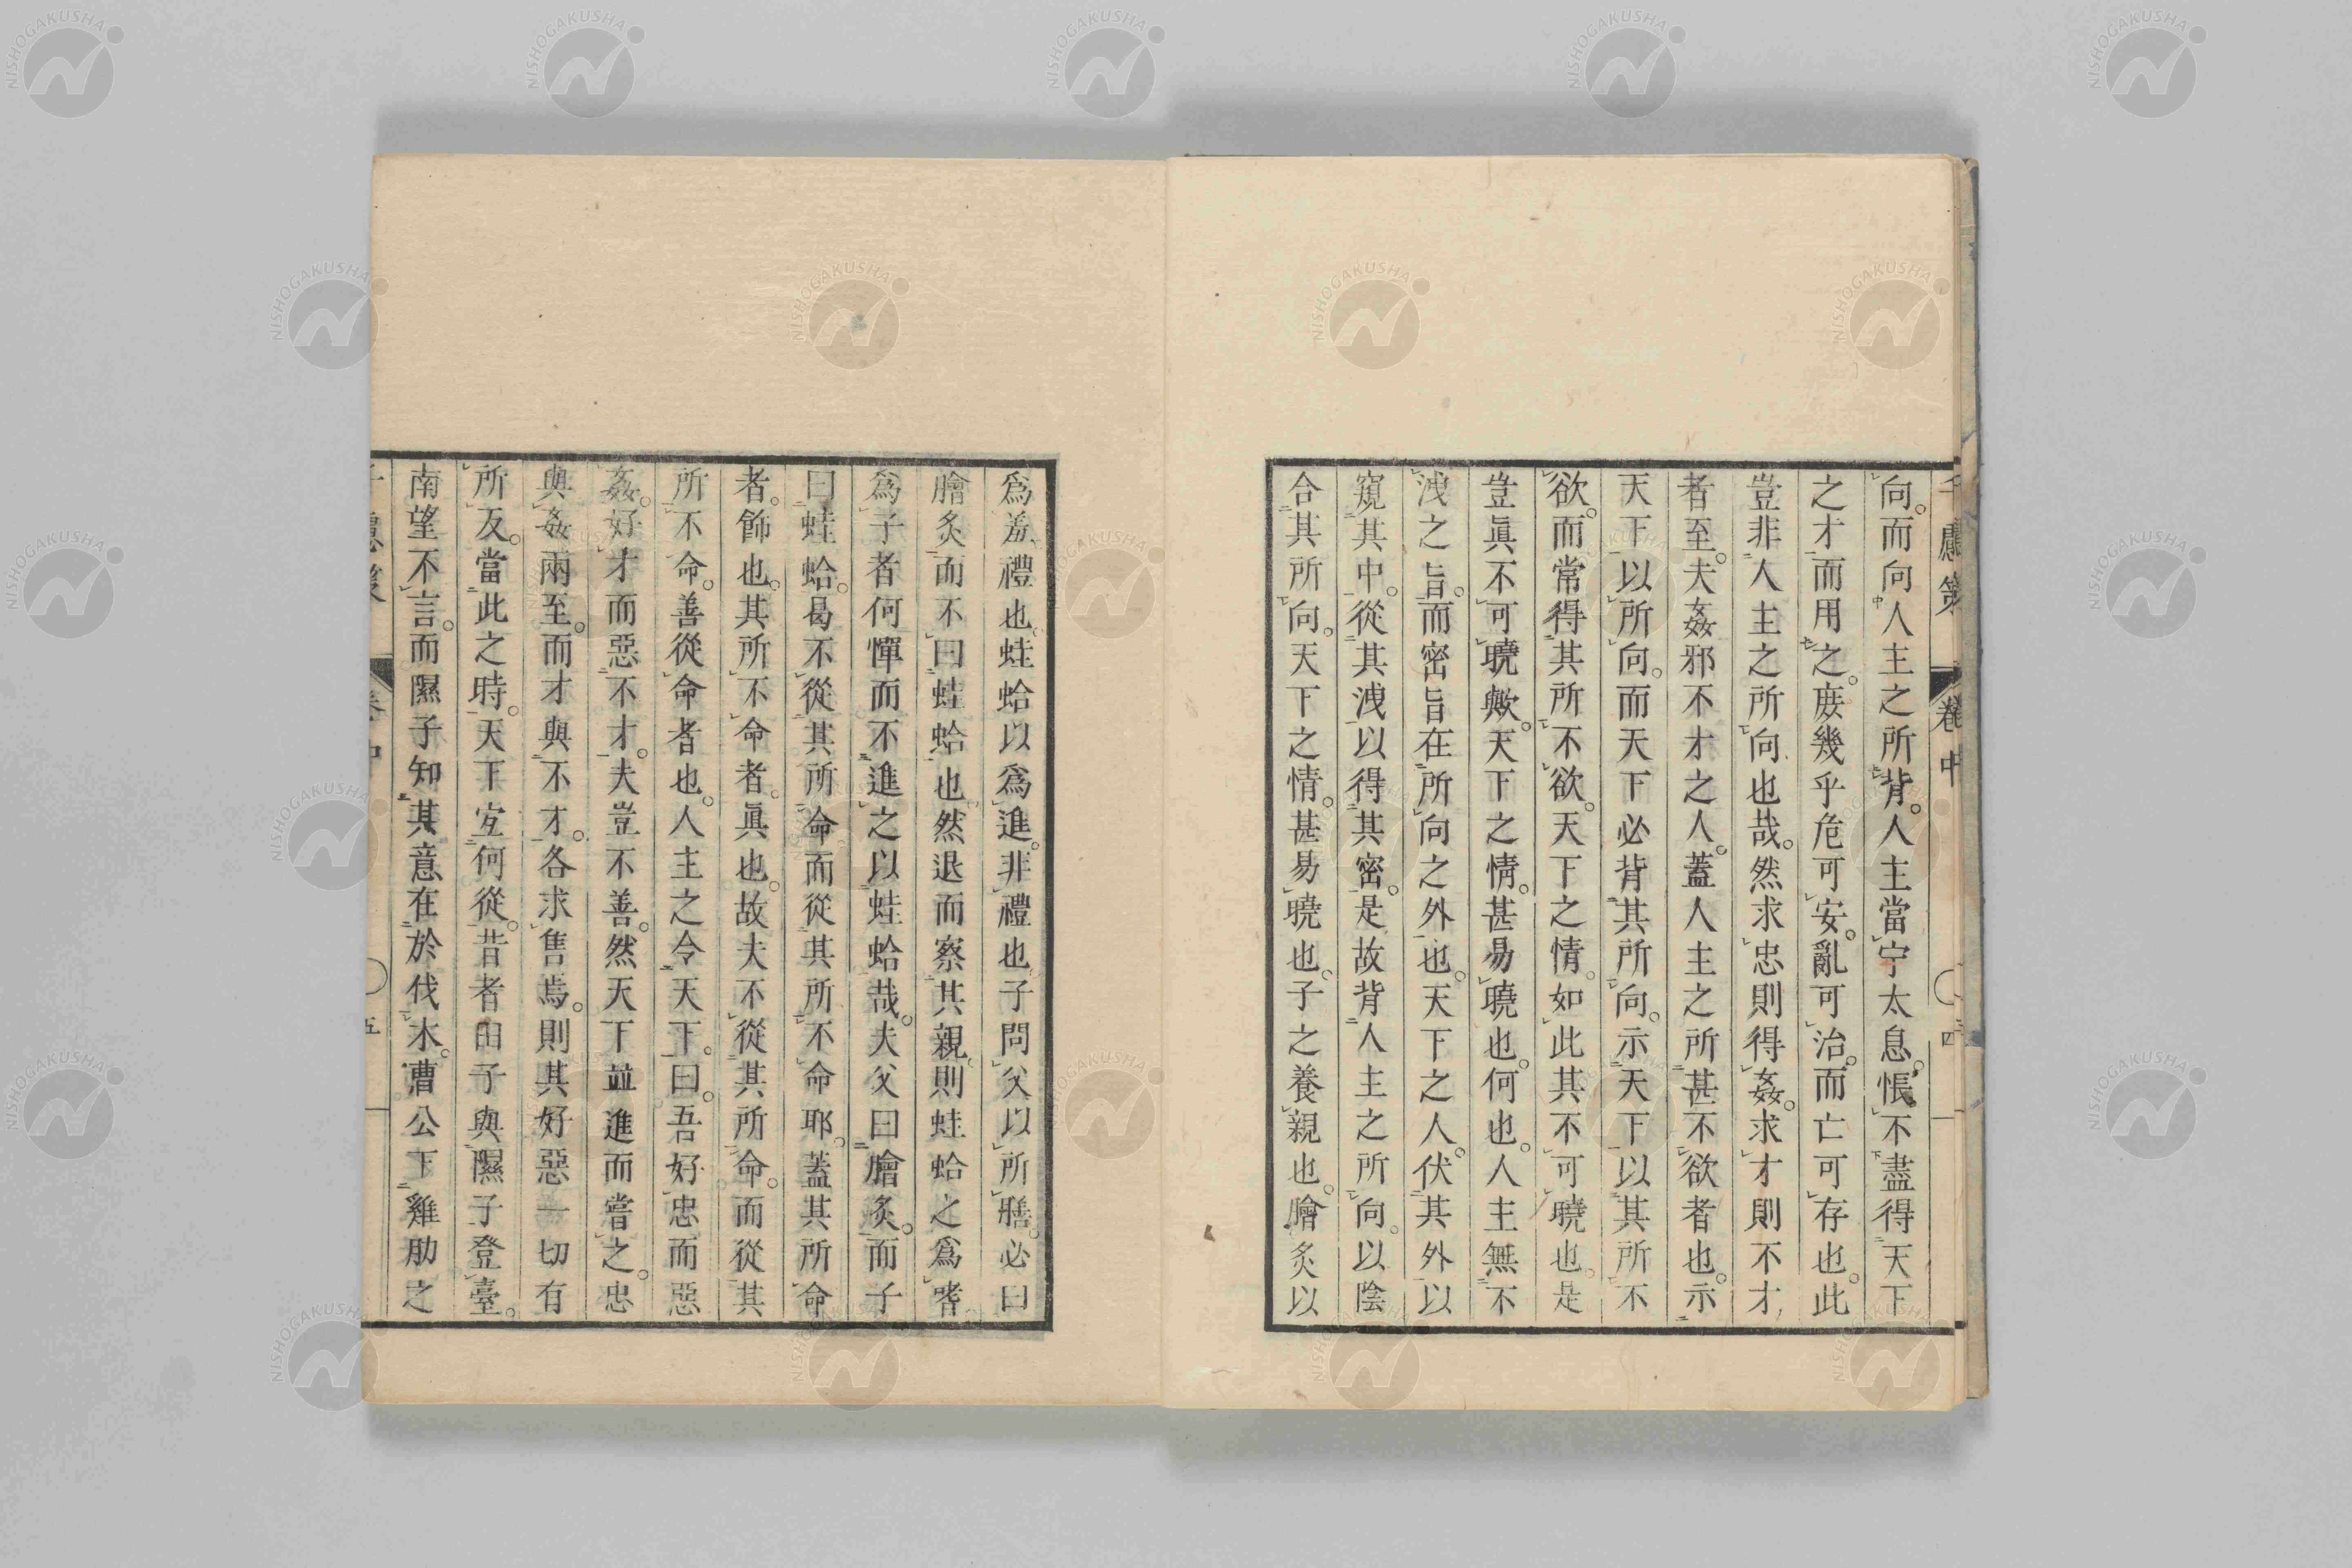 千慮策 卷中 四
向。而向人主之所背。人主當宁太息。悵不盡得天下
之才而用之。庻幾乎危可安。亂可治。而亡可存也。此
豈非人主之所向也哉。然求忠則得姦。求才則不才
者至。夫姦邪不才之人。蓋人主之所甚不欲者也。示
天下以所向。而天下必背其所向。示天下以其所不
欲。而常得其所不欲。天下之情。如此其不可曉也。是
豈眞不可曉歟。天下之情。甚易曉也。何也。人主無不
洩之旨。而密旨在所向之外也。天下之人。伏其外以
窺其中。從其洩以得其密。是故背人主之所向。以陰
合其所向。天下之情。甚易曉也。子之養親也。膾炙以
爲羞禮也。蛙蛤以爲進。非禮也。子問父以所膳。必曰
膾炙而不曰蛙蛤也。然退而察其親。則蛙蛤之爲嗜。
爲子者何憚而不進之以蛙蛤哉。夫父曰膾炙。而子
曰蛙蛤。曷不從其所命而從其所不命耶。蓋其所命
者。飾也。其所不命者。眞也。故夫不從其所命。而從其
所不命。善從命者也。人主之令天下。曰。吾好忠而惡
姦。好才而惡不才。夫豈不善。然天下並進而嘗之。忠
與姦兩至。而才與不才。各求售焉。則其好惡一切有
所反。當此之時。天下宜何從。昔者田子與隰子登臺。
南望不言。而隰子知其意在於伐木。曹公下雞肋之
千慮策 卷中 五
NISHOGAKUSHA